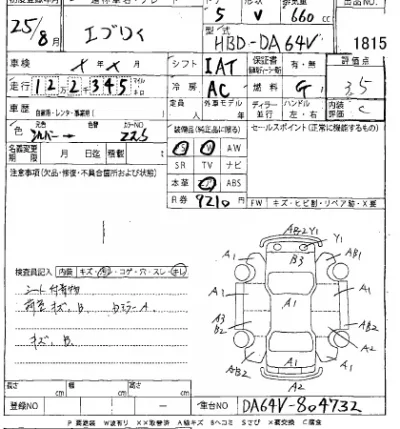 ドア 形状 排気量 出品NO
25/8月 エブリイ 5 V 660cc
型式 HBD-DA64V 1815
車検 X年X月 シフト IAT 保証書 有・無 評価点
走行 1 2万2千345 マイル キロ 冷房 AC 燃料 G 3.5
車歴 自家用・レンタ・事業用( ) 定員 人 外車モデル 年 ディーラー 並行 ハンドル 左・右 内装評価 C
色 元色 シルバー 色替 カラーNO Z2S 装備品(純正品に限る) セールスポイント(正常に機能するもの)
名義変更期限 月 日迄 積載量 t AW
SR TV ナビ
注意事項(欠品・修復・不具合箇所および状態) 本革 ABS
R券 9210円 FW キズ・ヒビ割・リペア跡・X要
AB2Y1
Y1
A1 B3 AB1
A1 A1 A1
A1
A3 B2 AB2
A1 A2
AB2 A1
A2
検査員記入 内装 キズ・コゲ・穴・スレ・キレ
シート付着物
荷室キズ、B、 ミラーA、
キズ、B
長さ cm 幅 cm 高さ cm
登録NO 車台NO DA64V-804732
P 要塗装 W波有り XX取替済 A線キズ Bヘコミ Sサビ X要交換 C腐食